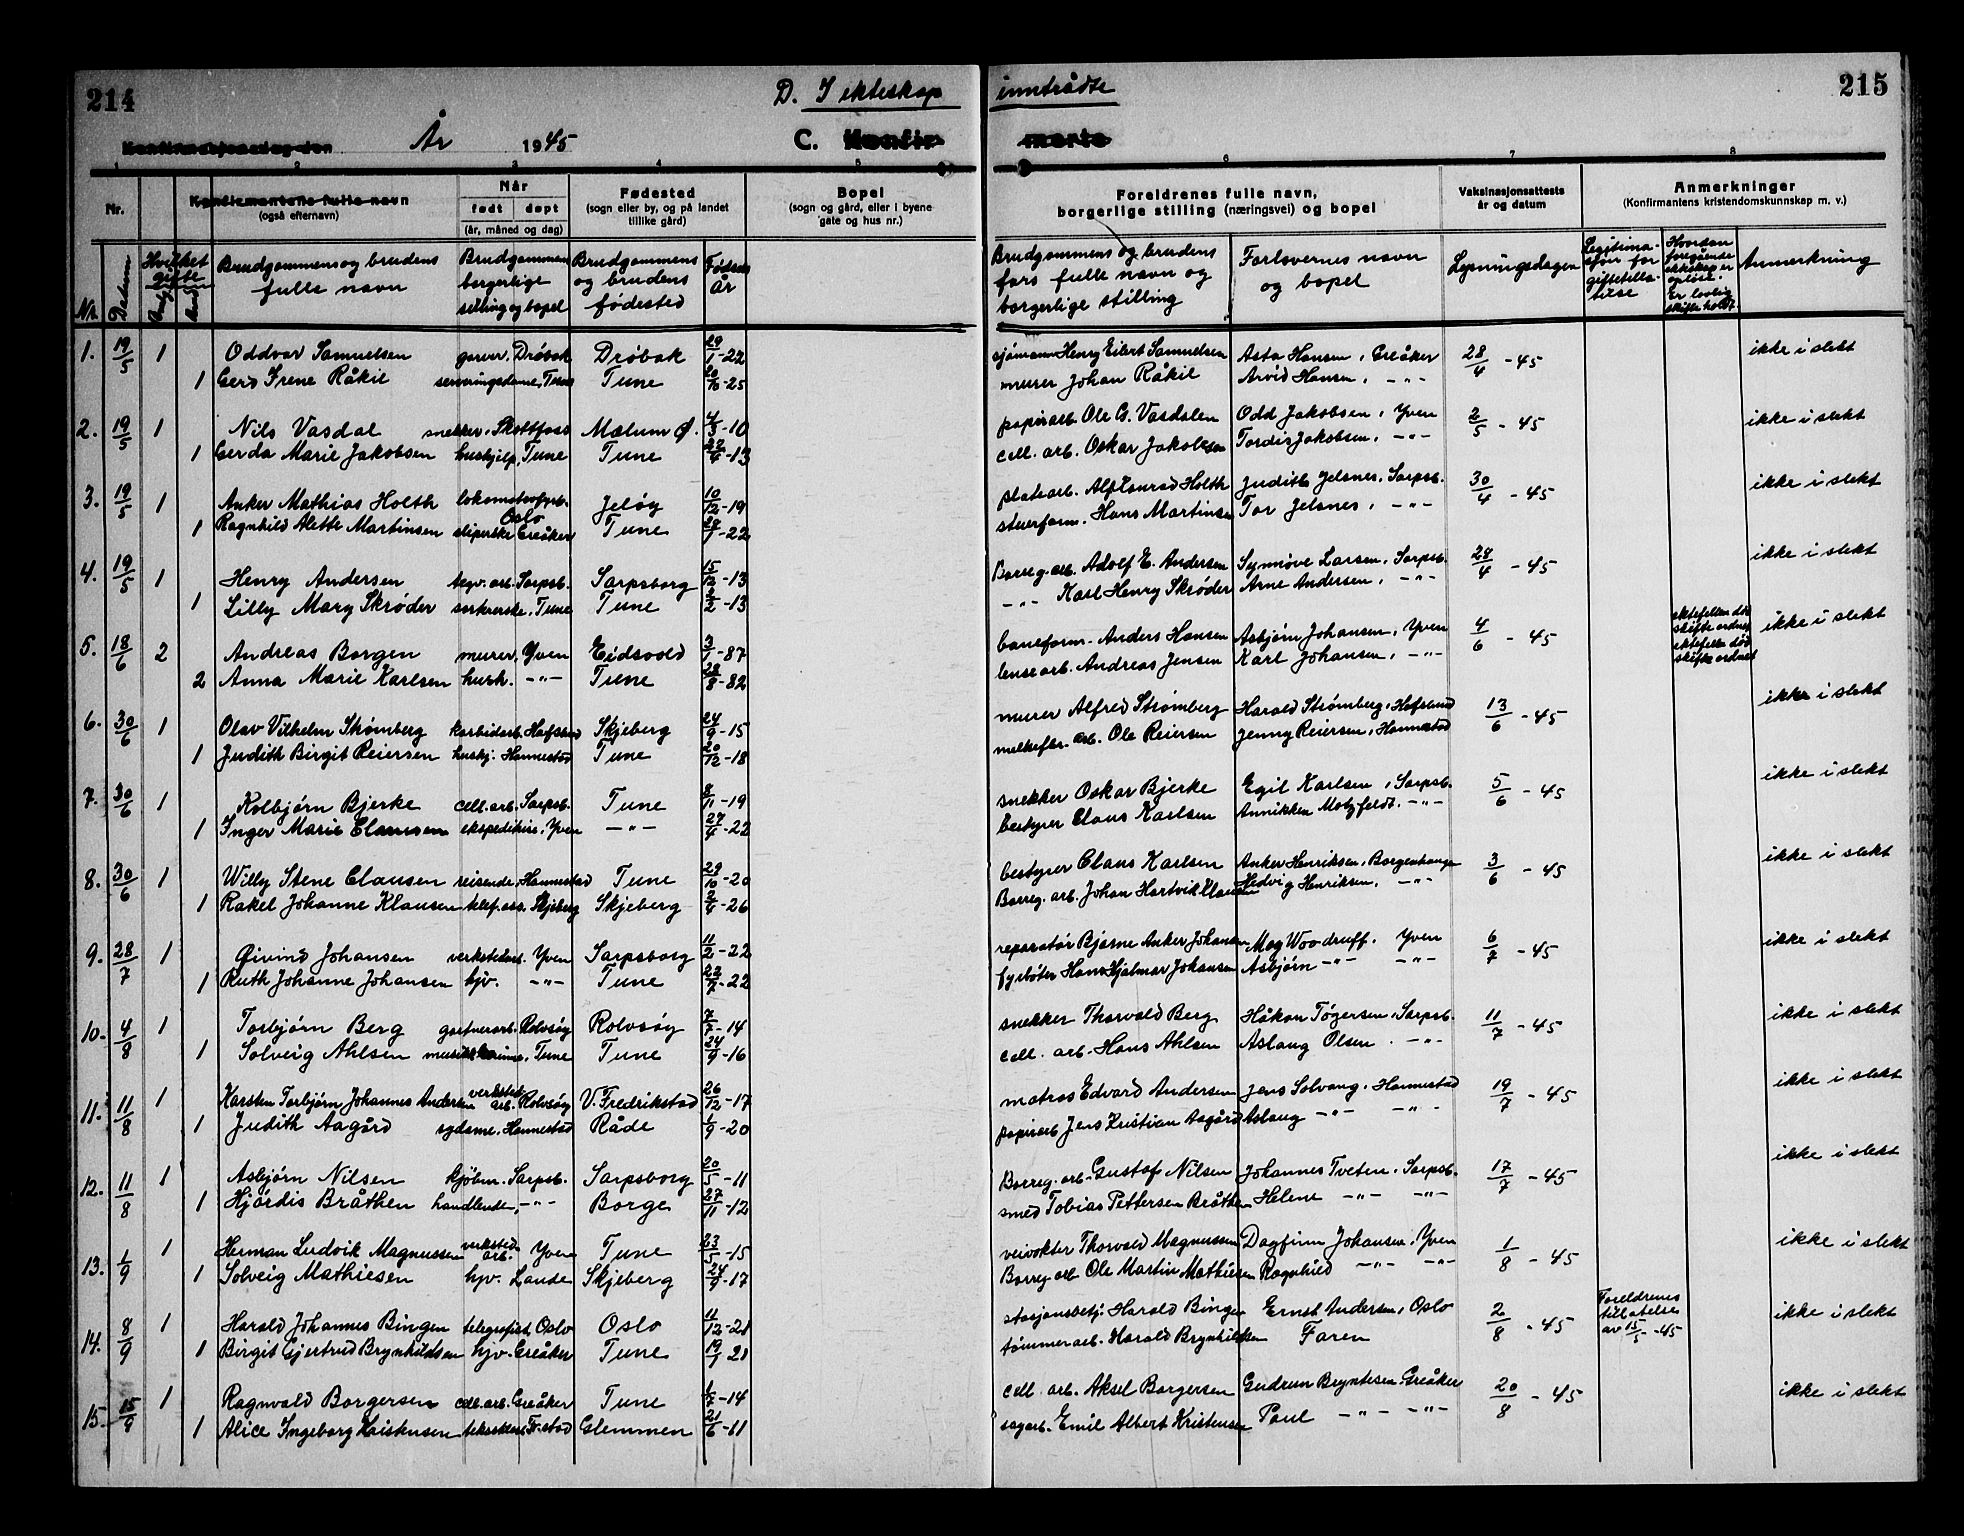 214
D. I ekteskap inntrådte
215
Konfirmasjonsdag den År 1945
C. Konfirmerte
1 2 3 4 5 6 7 8
Nr.
Konfirmantens fulle navn
(også efternavn)
Når
født døpt
(år, måned og dag)
Fødested
(sogn eller by, og på landet
tillike gård)
Bopel
(sogn og gård, eller i byene
gate og hus nr.)
Foreldrenes fulle navn,
borgerlige stilling (næringsvei) og bopel
Vaksinasjonsattests
år og datum
Anmerkninger
(Konfirmantens kristendomskunnskap m. v.)
Nr.
Datum
Hvilket gifte
Brudgommens og brudens
fulle navn
Brudgommens
borgerlige
stilling og bopel
Brudgommens
og brudens
fødested
Fødsels
år
Brudgommens og brudens
fars fulle navn og
borgerlige stilling
Forlovernes navn
og bopel
Lysningsdagen
Legitima-
sjon for
giftetilla-
telse
Hvordan
foregående
ekteskap er
opløst.
Er lovlig
skifte holdt
Anmerkning
1. 19/5 1 Oddvar Samuelsen garver, Drøbak Drøbak 29/1-22 sjømann Henry Eilert Samuelsen Asta Hansen, Greåker 28/4 -45 ikke i slekt
1 Gerd Irene Råkil serveringsdame, Tune Tune 20/10-25 murer Johan Råkil Arvid Hansen, -"-
2. 19/5 1 Nils Vasdal snekker, Skottfoss Mælum Ø. 4/3-10 papirarb. Ole G. Vasdalen Odd Jakobsen, Yven 2/5 -45 ikke i slekt
1 Gerda Marie Jakobsen hushjelp, Tune Tune 22/4-13 cell. arb. Oskar Jakobsen Tordis Jakobsen, -"-
3. 19/5 1 Anker Mathias Holth lokomotivfyrb. Oslo Jeløy 10/12-19 platearb. Alf Konrad Holth Judith Jelsnes, Sarpsb. 30/4 -45 ikke i slekt
1 Ragnhild Alette Martinsen sliperske Greåker Tune 22 stuerform. Hans Martinsen Tor Jelsnes, -"-
4. 19/5 1 Henry Andersen tegv. arb. Sarpsb. Sarpsborg 15/12-13 Borreg. arb. Adolf E. Andersen Synnøve Larsen, Sarpsb. 28/4 -45 ikke i slekt
1 Lilly Mary Skrøder sorterske, Tune Tune 2/2-13 -"- Karl Henry Skrøder Arne Andersen, -"-
5. 18/6 2 Andreas Borgen murer, Yven Eidsvold 3/1-87 baneform. Anders Hansen Asbjørn Johansen, Yven 4/6 -45 ektefellen død skifte ordnet ikke i slekt
2 Anna Marie Karlsen hush. -"- Tune 28/8-82 lensearb. Andreas Jensen Karl Johansen, -"- ektefellen død skifte ordnet
6. 30/6 1 Olav Vilhelm Strømberg karbidarb. Hafslund Skjeberg 24/9-15 murer Alfred Strømberg Harald Strømberg, Hafslund 13/6 -45 ikke i slekt
1 Judith Birgit Reiersen huskj. Hannestad Tune 20/12-18 melkefbr. arb. Ole Reiersen Jenny Reiersen, Hannestad
7. 30/6 1 Kolbjørn Bjerke cell. arb. Sarpsb. Tune 8/11-19 snekker Oskar Bjerke Egil Karlsen, Sarpsb. 5/6 -45 ikke i slekt
1 Inger Marie Clausen ekspeditrise, Yven -"- 27/4-22 bestyrer Claus Karlsen Annikken Motzfeldt, -"-
8. 30/6 1 Willy Stene Clausen reisende, Hannestad Tune 29/10-20 bestyrer Claus Karlsen Anker Henriksen, Borgenhaugen 3/6 -45 ikke i slekt
1 Rakel Johanne Klausen telef. ass. Skjeberg Skjeberg 2/4-26 Borreg. arb. Johan Hartvik Klausen Hedvig Henriksen, -"-
9. 28/7 1 Øivind Johansen verkstedarb. Yven Sarpsborg 11/2-22 reparatør Bjarne Anker Johansen May Woodruff. Yven 6/7 -45 ikke i slekt
1 Ruth Johanne Johansen hjv. -"- Tune 22/7-22 fyrbøter Hans Hjalmar Johansen Asbjørn -"- -"-
10. 4/8 1 Torbjørn Berg gartnerarb. Rolvsøy Rolvsøy 7/7-14 snekker Thorvald Berg Håkon Tøgersen, Sarpsb. 11/7 -45 ikke i slekt
1 Solveig Ahlsen Tune Tune 24/9-16 cell. arb. Hans Ahlsen Aslaug Olsen. -"-
11. 11/8 1 Karsten Torbjørn Johannes Andersen verksted arb. Rolvsøy V. Fredrikstad 26/12-17 matros Edvard Andersen Jens Solvang, Hannestad 19/7 -45 ikke i slekt
1 Judith Aagård sydame, Hannestad Råde 1/9-20 papirarb. Jens Kristian Aagård Aslaug -"- -"-
12. 11/8 1 Asbjørn Nilsen kjøbm. Sarpsb. Sarpsborg 20/5-11 Borreg. arb. Gustaf Nilsen Johannes Tveten, Sarpsb. 17/7 -45 ikke i slekt
1 Hjørdis Bråthen handlende, -"- Borge 27/11-12 smed Tobias Pettersen Bråthen Helene -"- -"-
13. 1/9 1 Herman Ludvik Magnussen verksted arb. Yven Tune 23/5-15 veivokter Thorvald Magnussen Dagfinn Johansen, Yven 1/8 -45 ikke i slekt
1 Solveig Mathiesen hjv. Lande Skjeberg 24/9-17 Borreg. arb Ole Martin Mathiesen Ragnhild -"- -"-
14. 8/9 1 Harald Johannes Bingen telegrafist Oslo Oslo 11/12-21 stasjonsbetj. Harald Bingen Ernst Andersen, Oslo 2/8 -45 Foreldrenes tillatelse av 15/5 -45 ikke i slekt
1 Birgit Gjertrud Brynhildsen hjv. Greåker Tune 19/1 21 tømmerarb. Harald Brynhildsen Faren
15. 15/9 1 Ragnvald Borgersen cell. arb. Greåker Tune 1/7-14 cell. arb. Aksel Borgersen Gudrun Bryntesen Greåker 20/8 -45 ikke i slekt
1 Alice Ingeborg Kristensen Fr.stad Glemmen 21/6-11 sagarb. Emil Albert Kristensen Paul -"- -"-